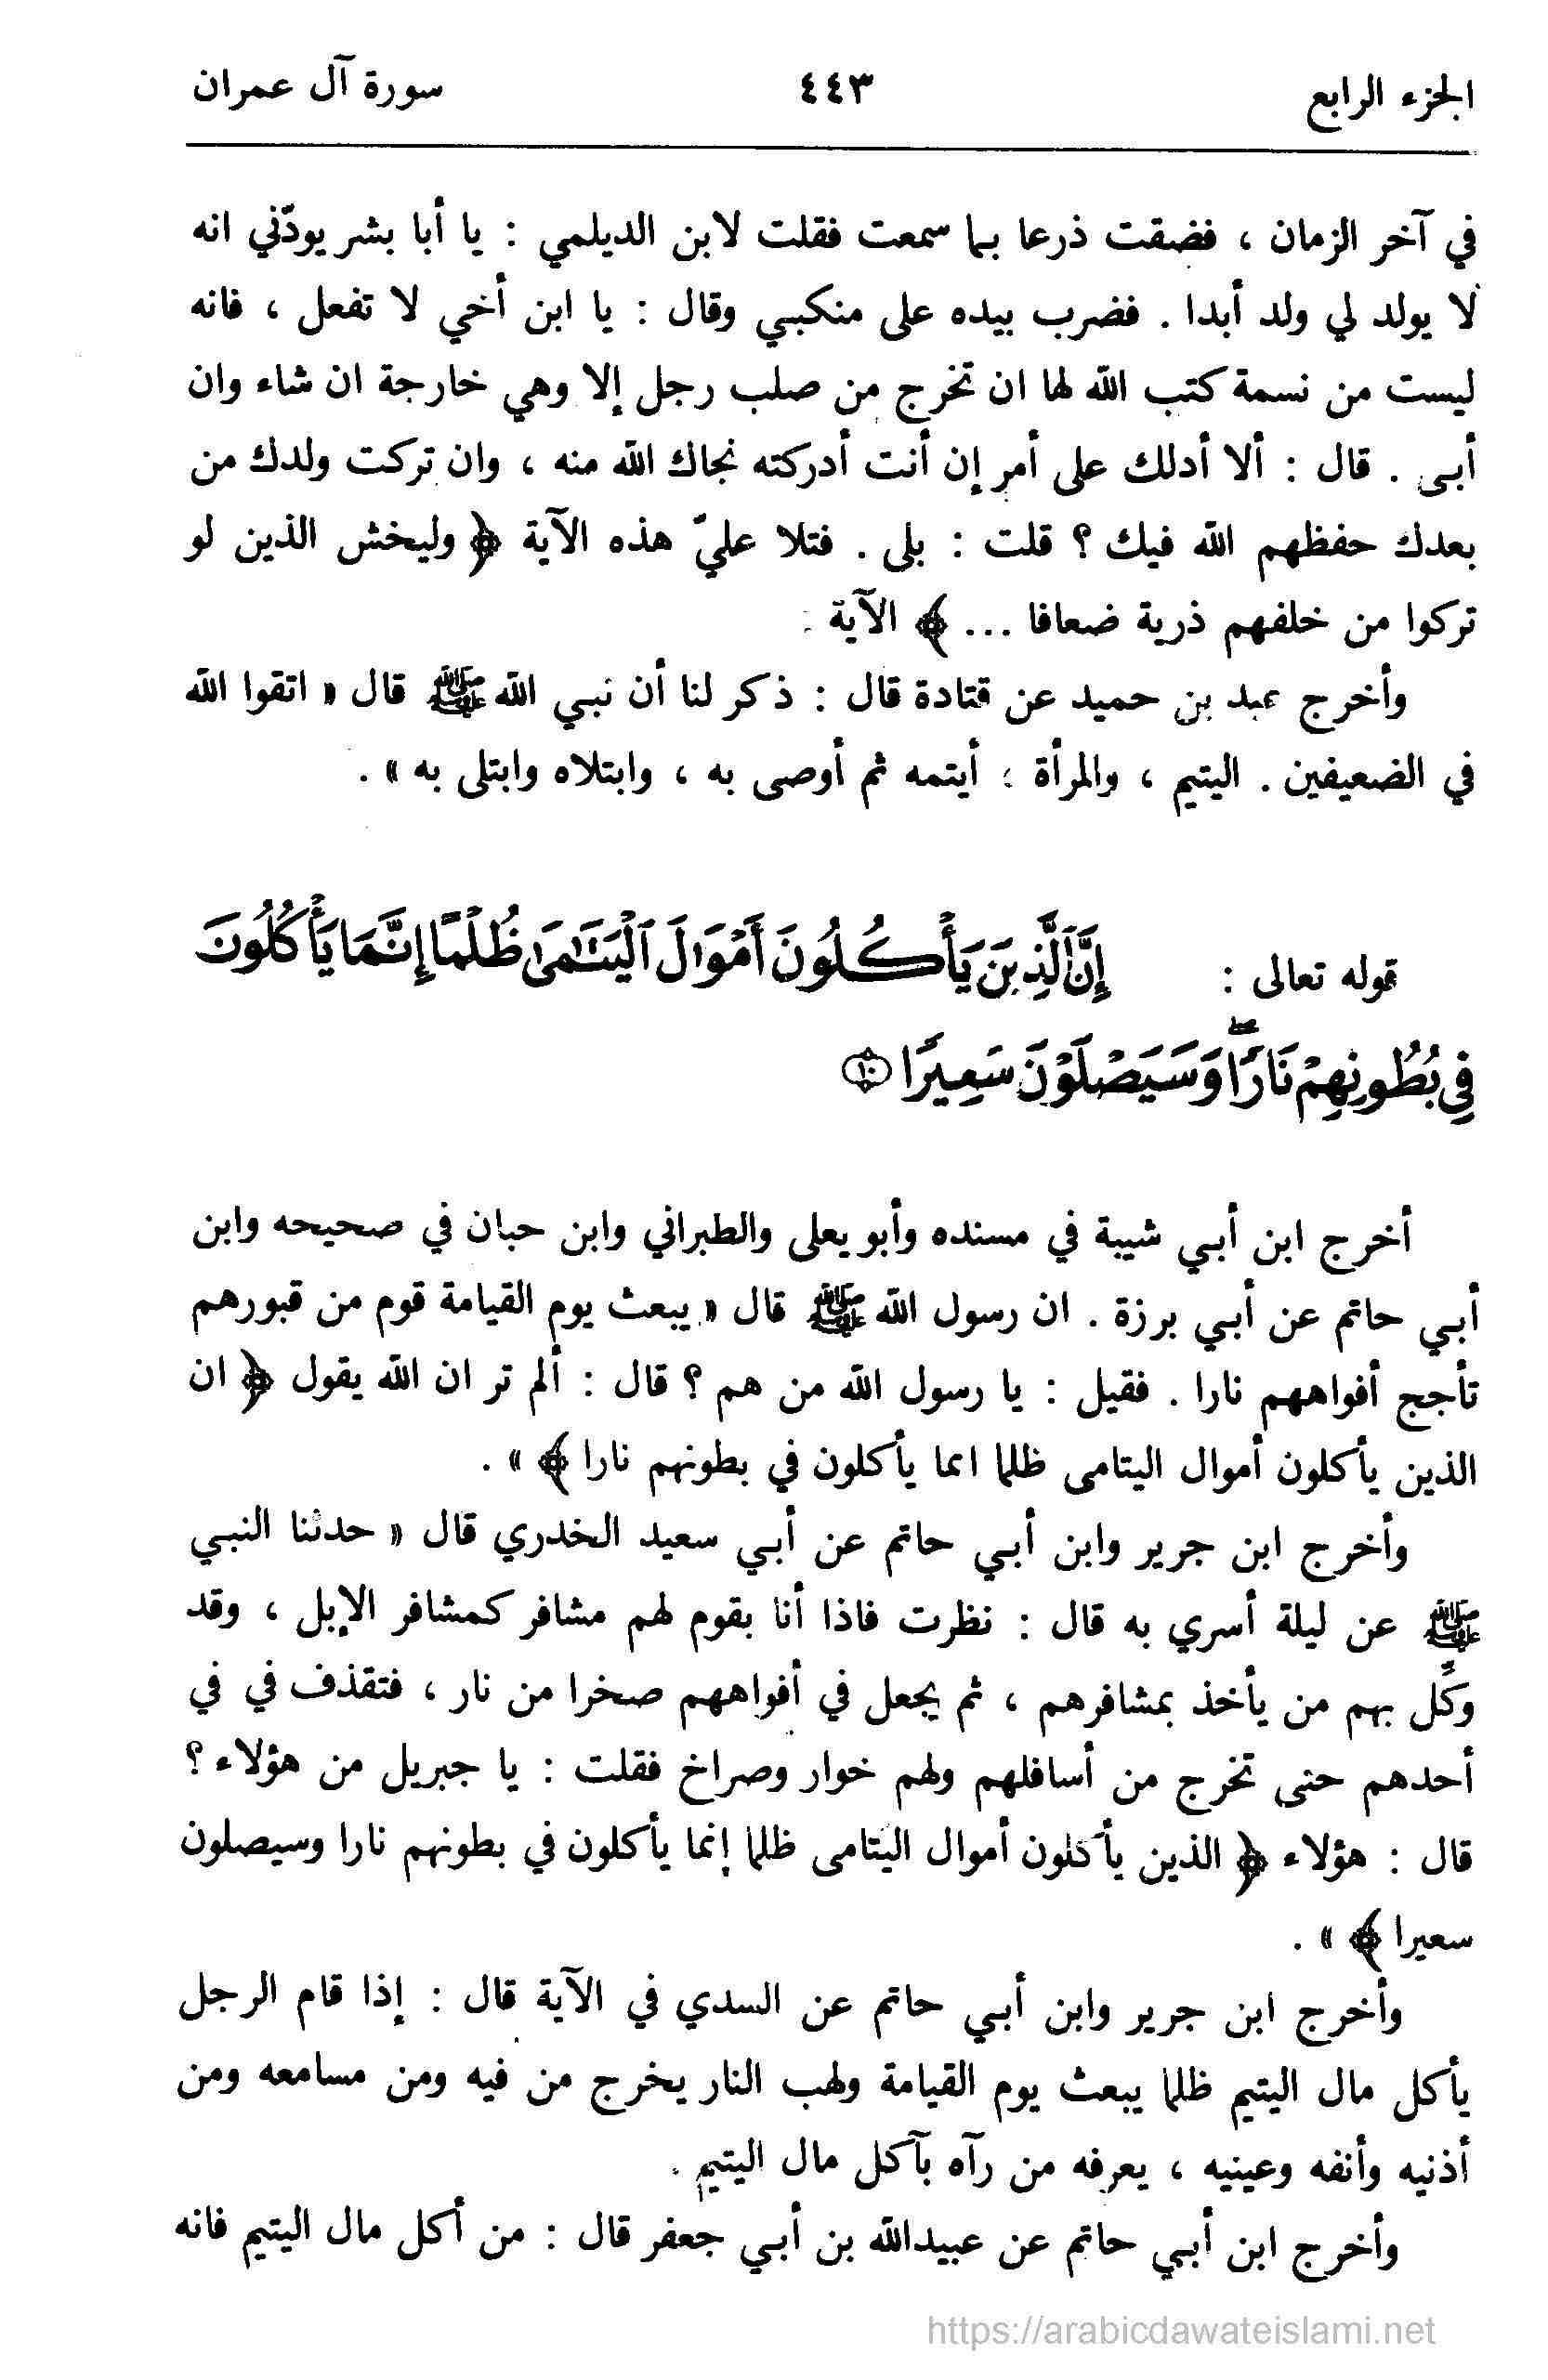 الجزء الرابع ٤٤٣ سورة آل عمران
في آخر الزمان ، فضقت ذرعا بما سمعت فقلت لابن الديلمي : يا أبا بشر يودّني انه
لا يولد لي ولد أبدا . فضرب بيده على منكبي وقال : يا ابن أخي لا تفعل ، فانه
ليست من نسمة كتب الله لها ان تخرج من صلب رجل إلا وهي خارجة ان شاء وان
أبى . قال : ألا أدلك على أمر إن أنت أدركته نجاك الله منه ، وان تركت ولدك من
بعدك حفظهم الله فيك ؟ قلت : بلى . فتلا عليّ هذه الآية ﴿ وليخش الذين لو
تركوا من خلفهم ذرية ضعافا ... ﴾ الآية .
وأخرج عبد بن حميد عن قتادة قال : ذكر لنا أن نبي الله ﷺ قال « اتقوا الله
في الضعيفين . اليتيم ، والمرأة ؛ أيتمه ثم أوصى به ، وابتلاه وابتلى به » .
قوله تعالى : إِنَّ ٱلَّذِينَ يَأْكُلُونَ أَمْوَٰلَ ٱلْيَتَـٰمَىٰ ظُلْمًا إِنَّمَا يَأْكُلُونَ
فِي بُطُونِهِمْ نَارًۭا ۖ وَسَيَصْلَوْنَ سَعِيرًۭا ۝١٠
أخرج ابن أبي شيبة في مسنده وأبو يعلى والطبراني وابن حبان في صحيحه وابن
أبي حاتم عن أبي برزة . ان رسول الله ﷺ قال « يبعث يوم القيامة قوم من قبورهم
تأجج أفواههم نارا . فقيل : يا رسول الله من هم ؟ قال : ألم تر ان الله يقول ﴿ ان
الذين يأكلون أموال اليتامى ظلما انما يأكلون في بطونهم نارا ﴾ » .
وأخرج ابن جرير وابن أبي حاتم عن أبي سعيد الخدري قال « حدثنا النبي
ﷺ عن ليلة أسري به قال : نظرت فاذا أنا بقوم لهم مشافر كمشافر الإبل ، وقد
وكِّل بهم من يأخذ بمشافرهم ، ثم يجعل في أفواههم صخرا من نار ، فتقذف في في
أحدهم حتى تخرج من أسافلهم ولهم خوار وصراخ فقلت : يا جبريل من هؤلاء ؟
قال : هؤلاء ﴿ الذين يأكلون أموال اليتامى ظلما إنما يأكلون في بطونهم نارا وسيصلون
سعيرا ﴾ » .
وأخرج ابن جرير وابن أبي حاتم عن السدي في الآية قال : إذا قام الرجل
يأكل مال اليتيم ظلما يبعث يوم القيامة ولهب النار يخرج من فيه ومن مسامعه ومن
أذنيه وأنفه وعينيه ، يعرفه من رآه بآكل مال اليتيم .
وأخرج ابن أبي حاتم عن عبيدالله بن أبي جعفر قال : من أكل مال اليتيم فانه
https://arabicdawateislami.net